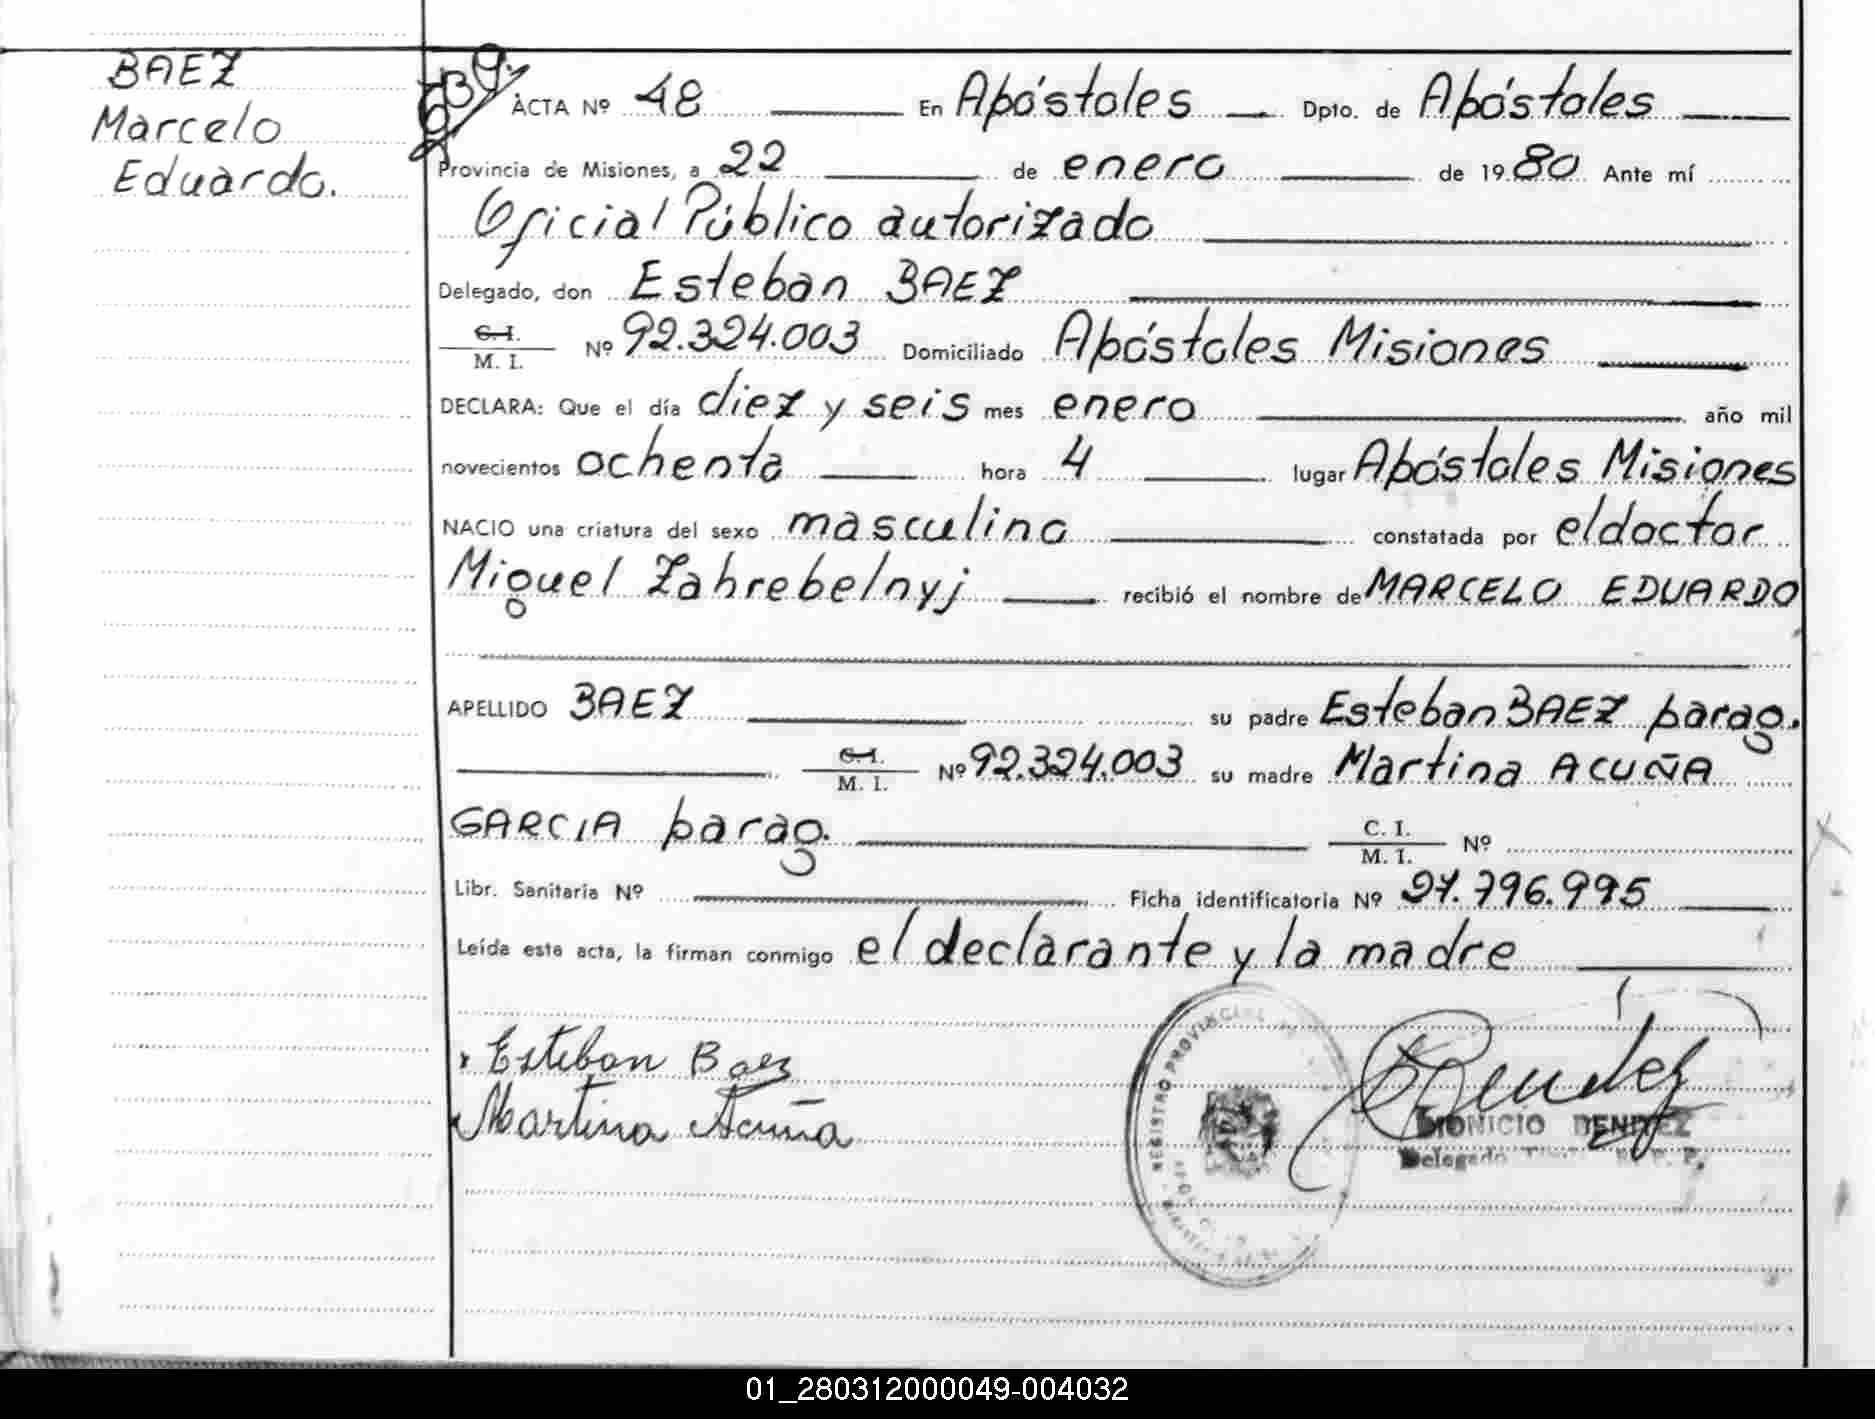 BAEZ
Marcelo
Eduardo.
539
ACTA Nº 48 En Apóstoles Dpto. de Apóstoles
Provincia de Misiones, a 22 de enero de 1980 Ante mí
Oficial Público autorizado
Delegado, don Esteban BAEZ
C. I.
M. I. Nº 92.324.003 Domiciliado Apóstoles Misiones
DECLARA: Que el día diez y seis mes enero año mil
novecientos ochenta hora 4 lugar Apóstoles Misiones
NACIO una criatura del sexo masculino constatada por el doctor
Miguel Zahrebelnyj recibió el nombre de MARCELO EDUARDO
APELLIDO BAEZ su padre Esteban BAEZ parag.
C. I.
M. I. Nº 92.324.003 su madre Martina ACUÑA
GARCIA parag. C. I.
M. I. Nº
Libr. Sanitaria Nº Ficha identificatoria Nº 27.796.995
Leída esta acta, la firman conmigo el declarante y la madre
Esteban Baez
Martina Acuña
REGISTRO PROVINCIAL
DIONICIO BENITEZ
Delegado
01_280312000049-004032